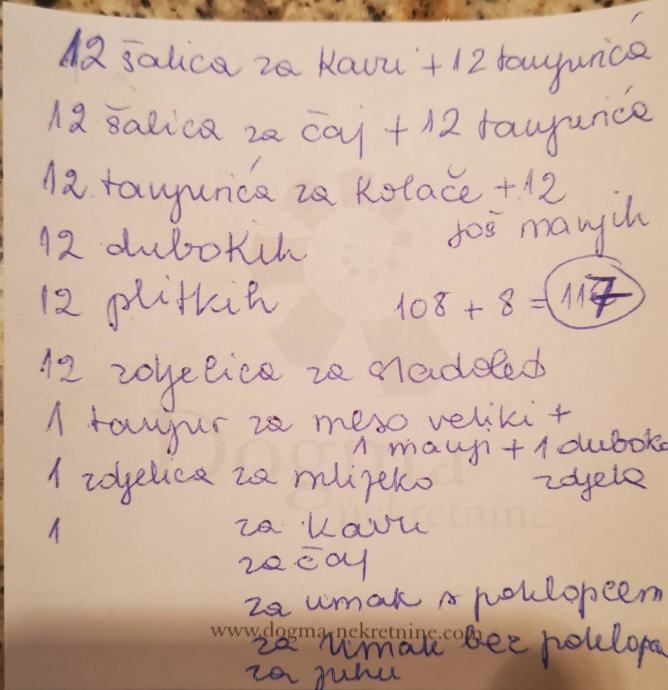 12 šalica za kavu + 12 tanjurića
12 šalica za čaj + 12 tanjurića
12 tanjurića za kolače + 12
još manjih
12 dubokih
12 plitkih 108 + 8 = 117
12 zdjelica za sladoled
1 tanjur za meso veliki +
1 manji + 1 duboka
zdjela
1 zdjelica za mlijeko
1 za kavu
za čaj
za umak s poklopcem
www.dogma-nekretnine.com
za umak bez poklopa
za juhu
Dogma
nekretnine